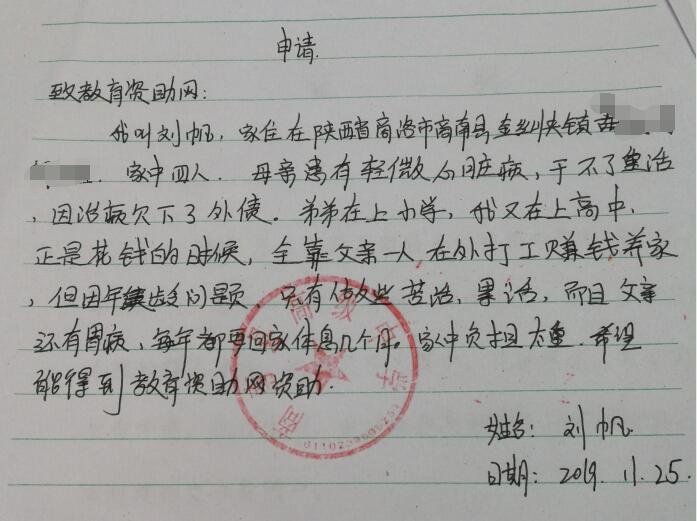 申请
致教育资助网:
我叫刘帆,家住在陕西省商洛市商南县金丝峡镇
家中四人. 母亲患有轻微心脏病,干不了重活
,因治病欠下了外债。弟弟在上小学,我又在上高中,
正是花钱的时候,全靠父亲一人在外打工赚钱养家
,但因年龄问题,只有做些苦活,累活,而且父亲
还有胃病,每年都要回家休息几个月。家中负担太重.希望
能得到教育资助网资助.
姓名:刘帆
日期:2019.11.25.
高级中学